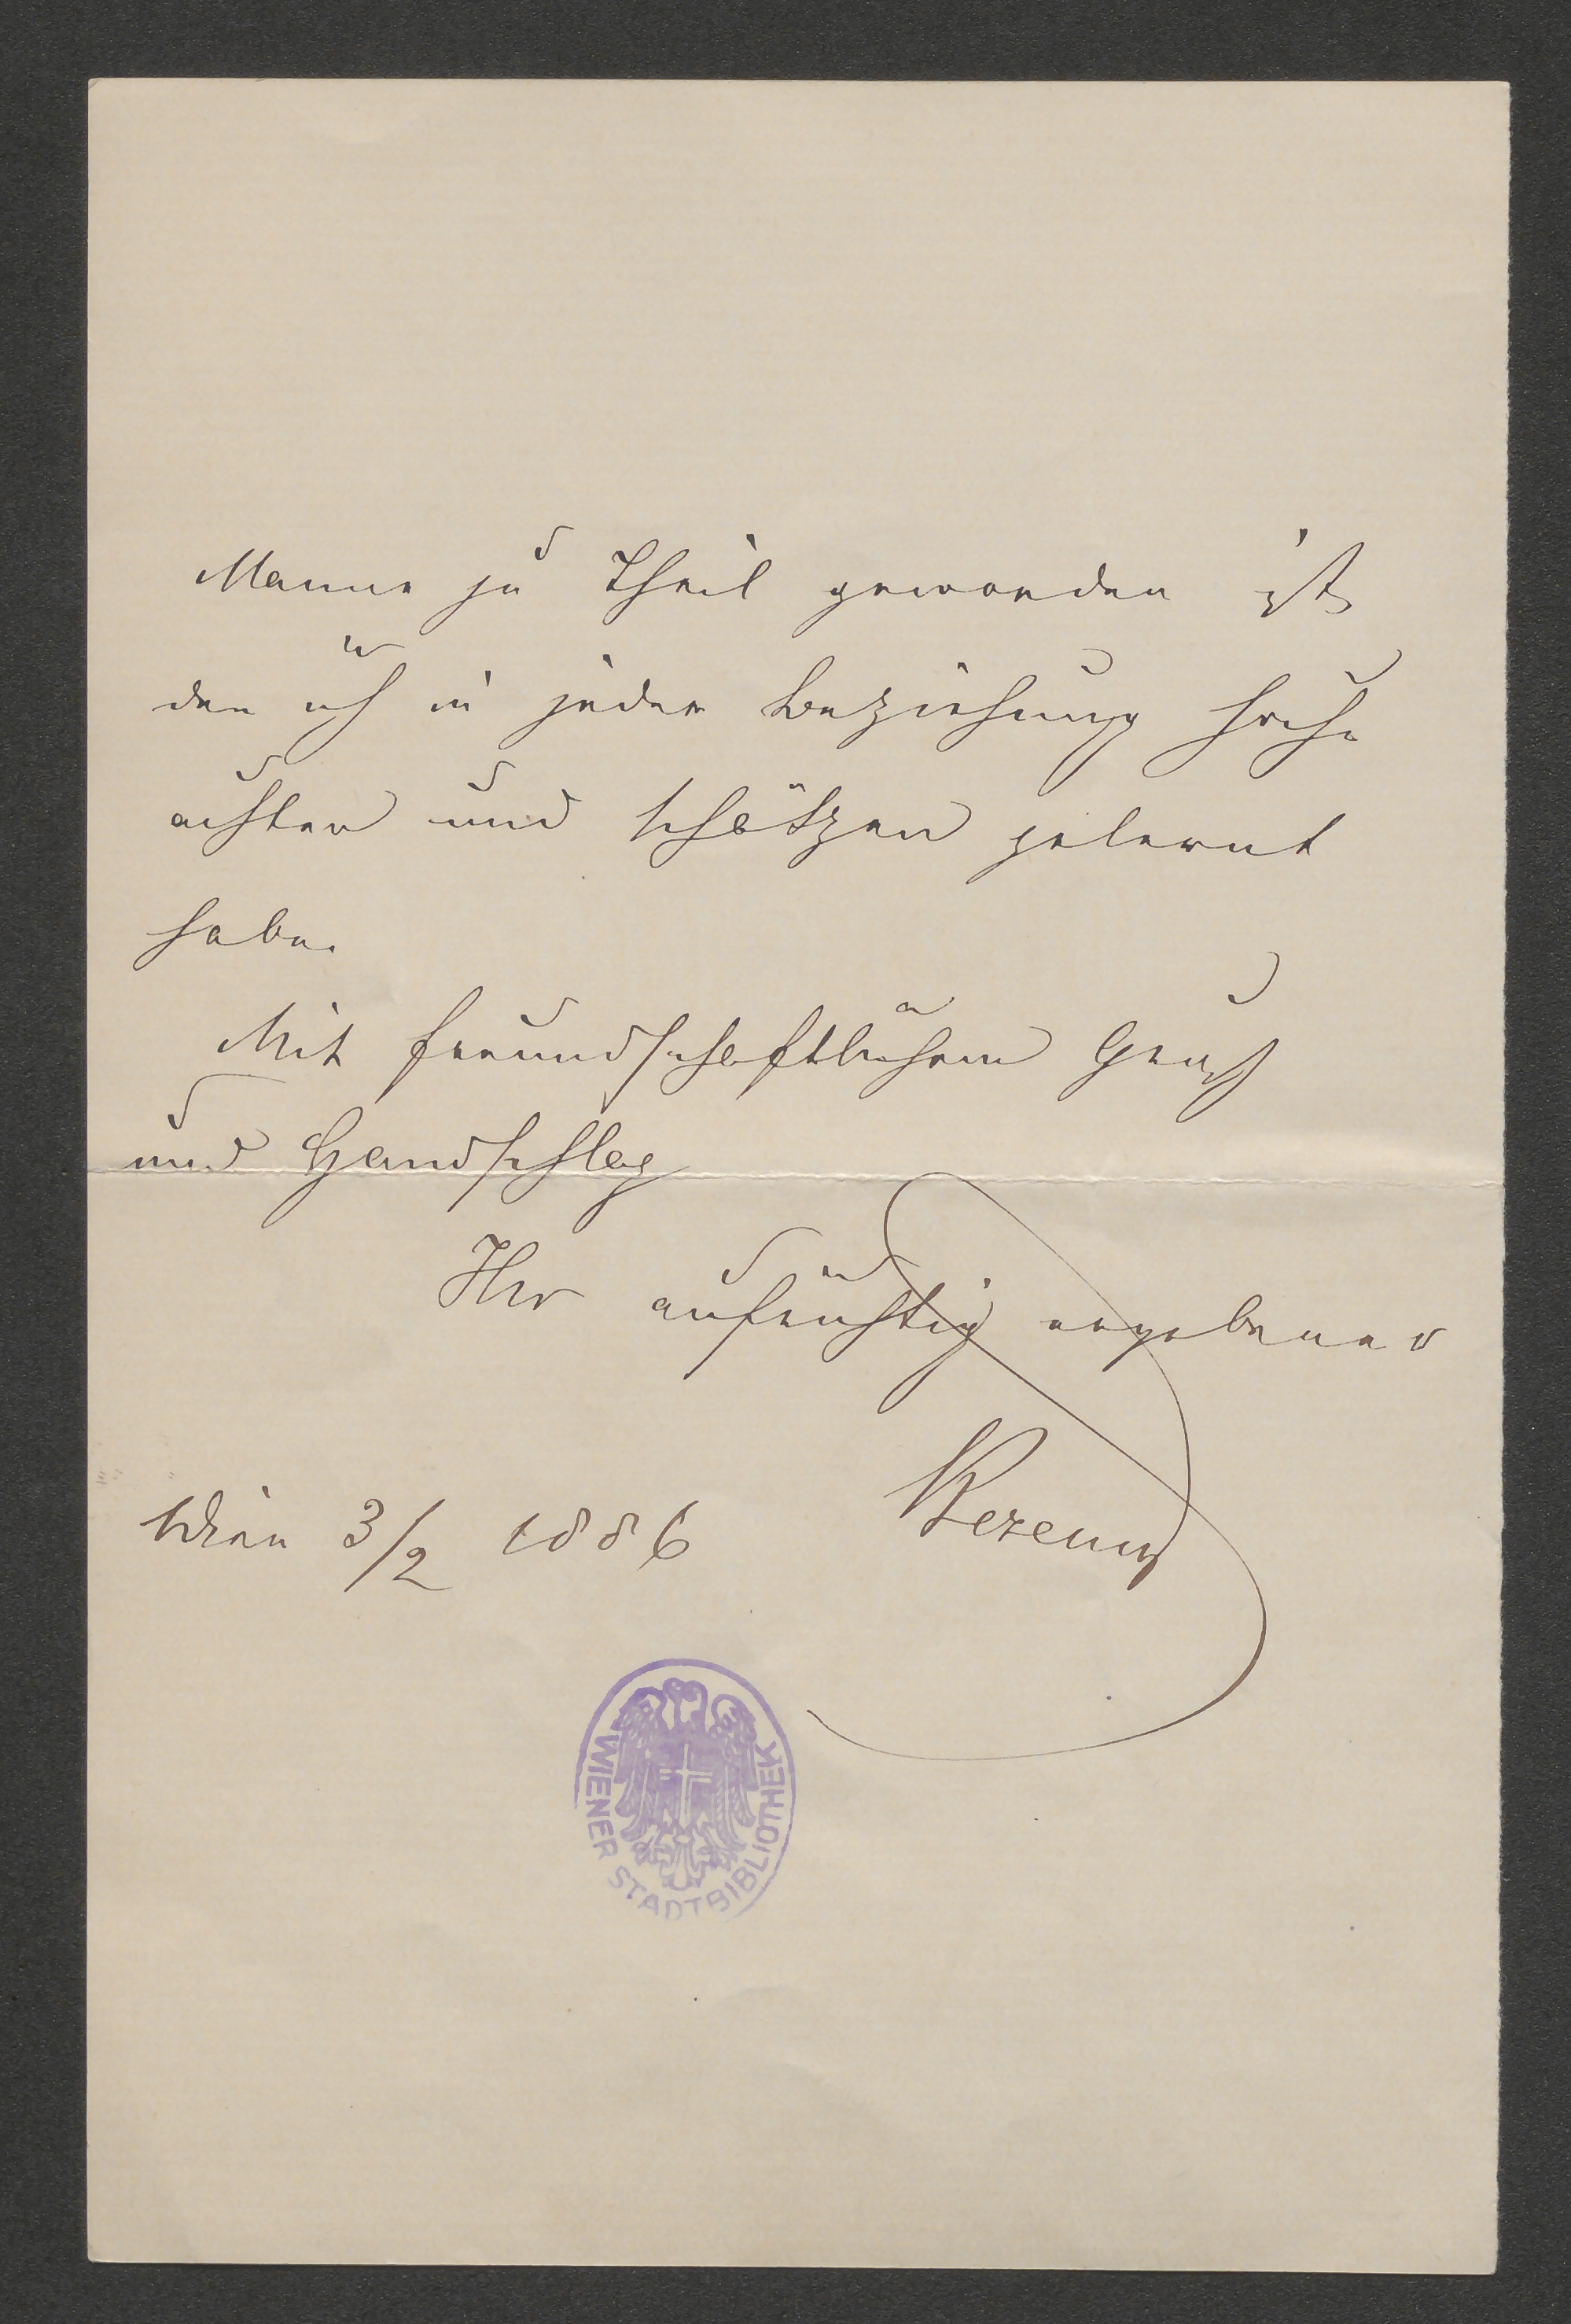 Manne zu Theil geworden ist
den ich in jeder Beziehung hoch
achten und schätzen gelernt
habe.
Mit freundschaftlichem Gruß
und Handschlag
Ihr aufrichtig ergebener
Wien 3/2 1886
WIENER STADTBIBLIOTHEK